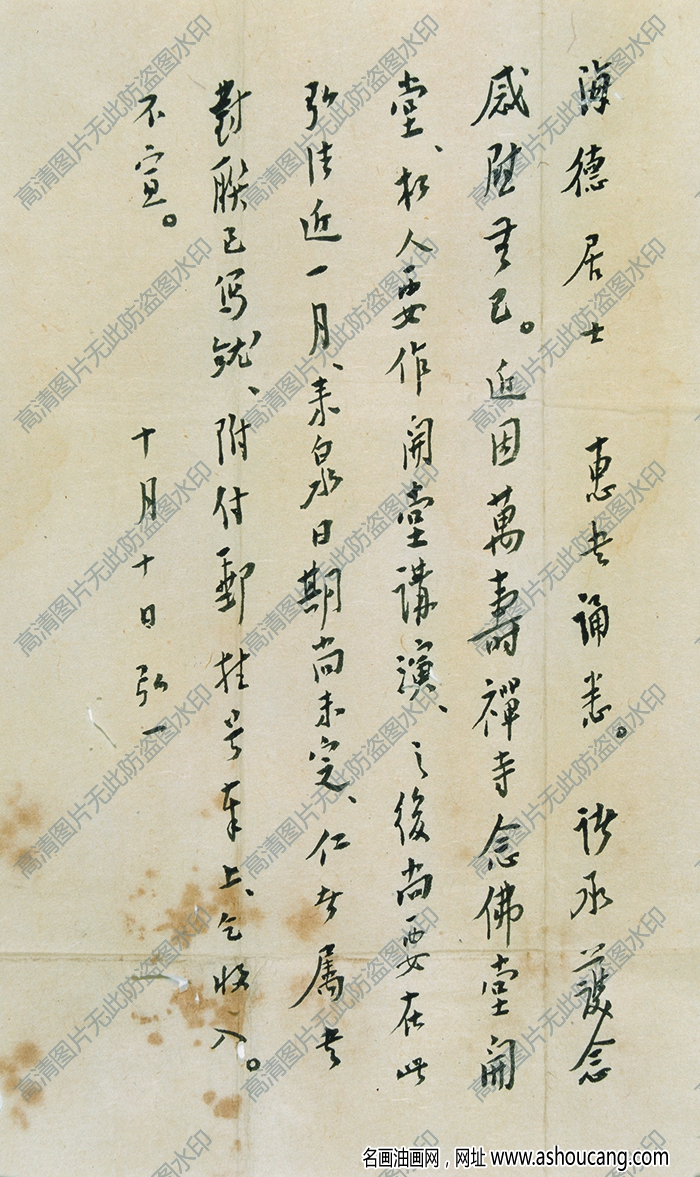 海德居士 惠书诵悉。诸承護念
感慰无已。近因萬壽禪寺念佛堂開
堂、松人要作開堂講演、之後尚要在此
弘法近一月、来泉日期尚未定、仁者属书
對聯已写就、附付郵挂号奉上、乞收入。
不宣。
十月十日 弘一
高清图片无此防盗图水印
名画油画网，网址 www.ashoucang.com